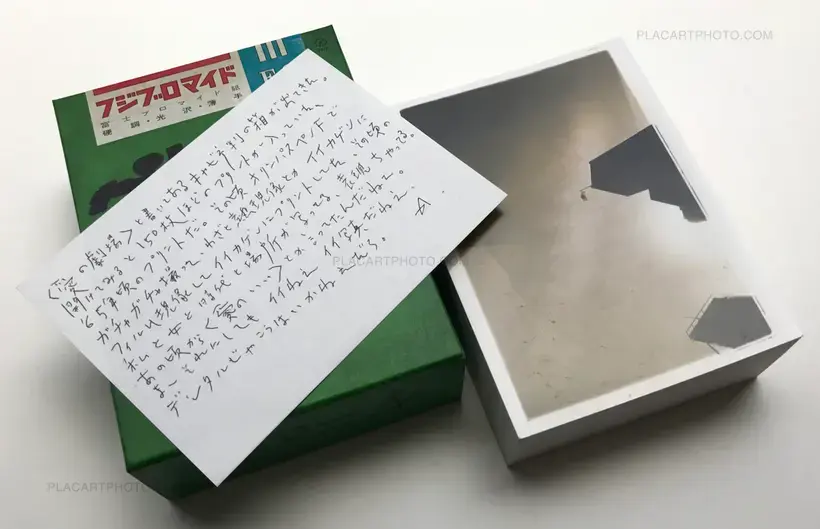 PLACARTPHOTO.COM
フジブロマイド
富士ブロマイド印
硬調・光沢・薄手
〈愛の劇場〉と書いてあるキャビネ判の箱が出てきた。
開けてみると150枚ほどのプリントが入っていた、
'65年頃のプリントだ。その頃オリンパスペンFで
ガチャガチャ撮って、わざと熱現像とかイイカゲンに
フィルム現像してイイカゲンにプリントしてた、その頃の
ボクと女と時代と場所が写ってる、表現しちゃってる。
あの頃から〈愛の…〉とか言ってたんだねェ。
まーそれにしても イイねェ イイ写真だねェ、
デジタルじゃこうはいかねェだろ。
A
PLACARTPHOTO.COM
PLACARTPHOTO.COM